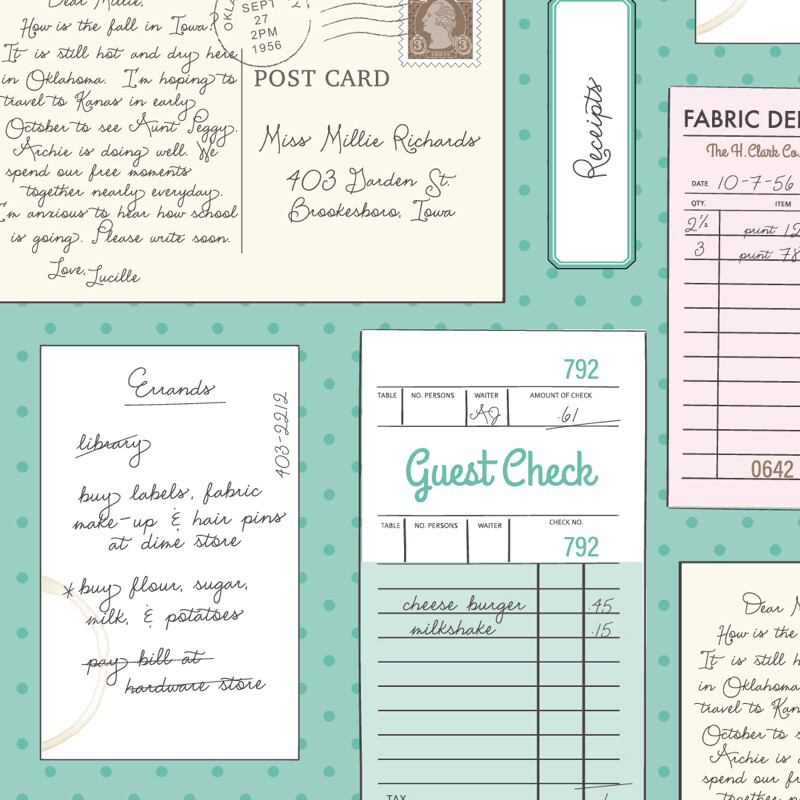 Dear Millie,
How is the fall in Iowa?
It is still hot and dry here
in Oklahoma. I'm hoping to
travel to Kanas in early
October to see Aunt Peggy.
Archie is doing well. We
spend our free moments
together nearly everyday.
I'm anxious to hear how school
is going. Please write soon.
Love, Lucille
SEPT
27
2PM
1956
3 3
POST CARD
Miss Millie Richards
403 Garden St.
Brookesboro, Iowa
Receipts
FABRIC
The H. Clark Co.
DATE 10-7-56
QTY. ITEM
2½ print
3 print 78
0642
Errands
403-2212
library
buy labels, fabric
make-up & hair pins
at dime store
*buy flour, sugar,
milk, & potatoes
pay bill at
hardware store
792
TABLE NO. PERSONS WAITER AMOUNT OF CHECK
AJ .61
Guest Check
TABLE NO. PERSONS WAITER CHECK NO.
792
cheese burger .45
milkshake .15
TAX
Dear
How is the
It is still
in Oklahoma
travel to
October to
Archie is
spend our
together